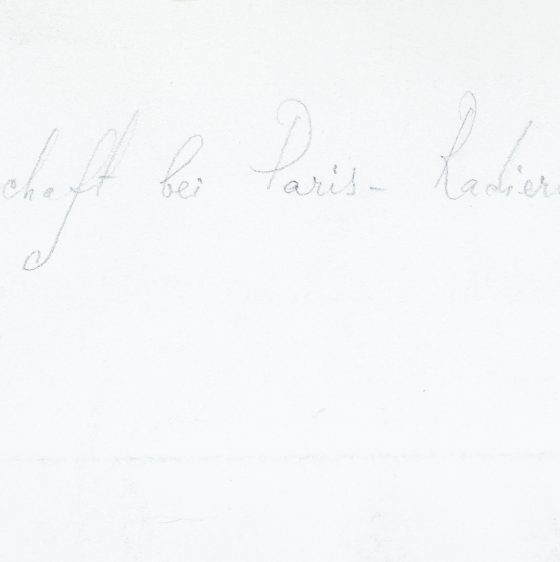 chaft bei Paris- Radier